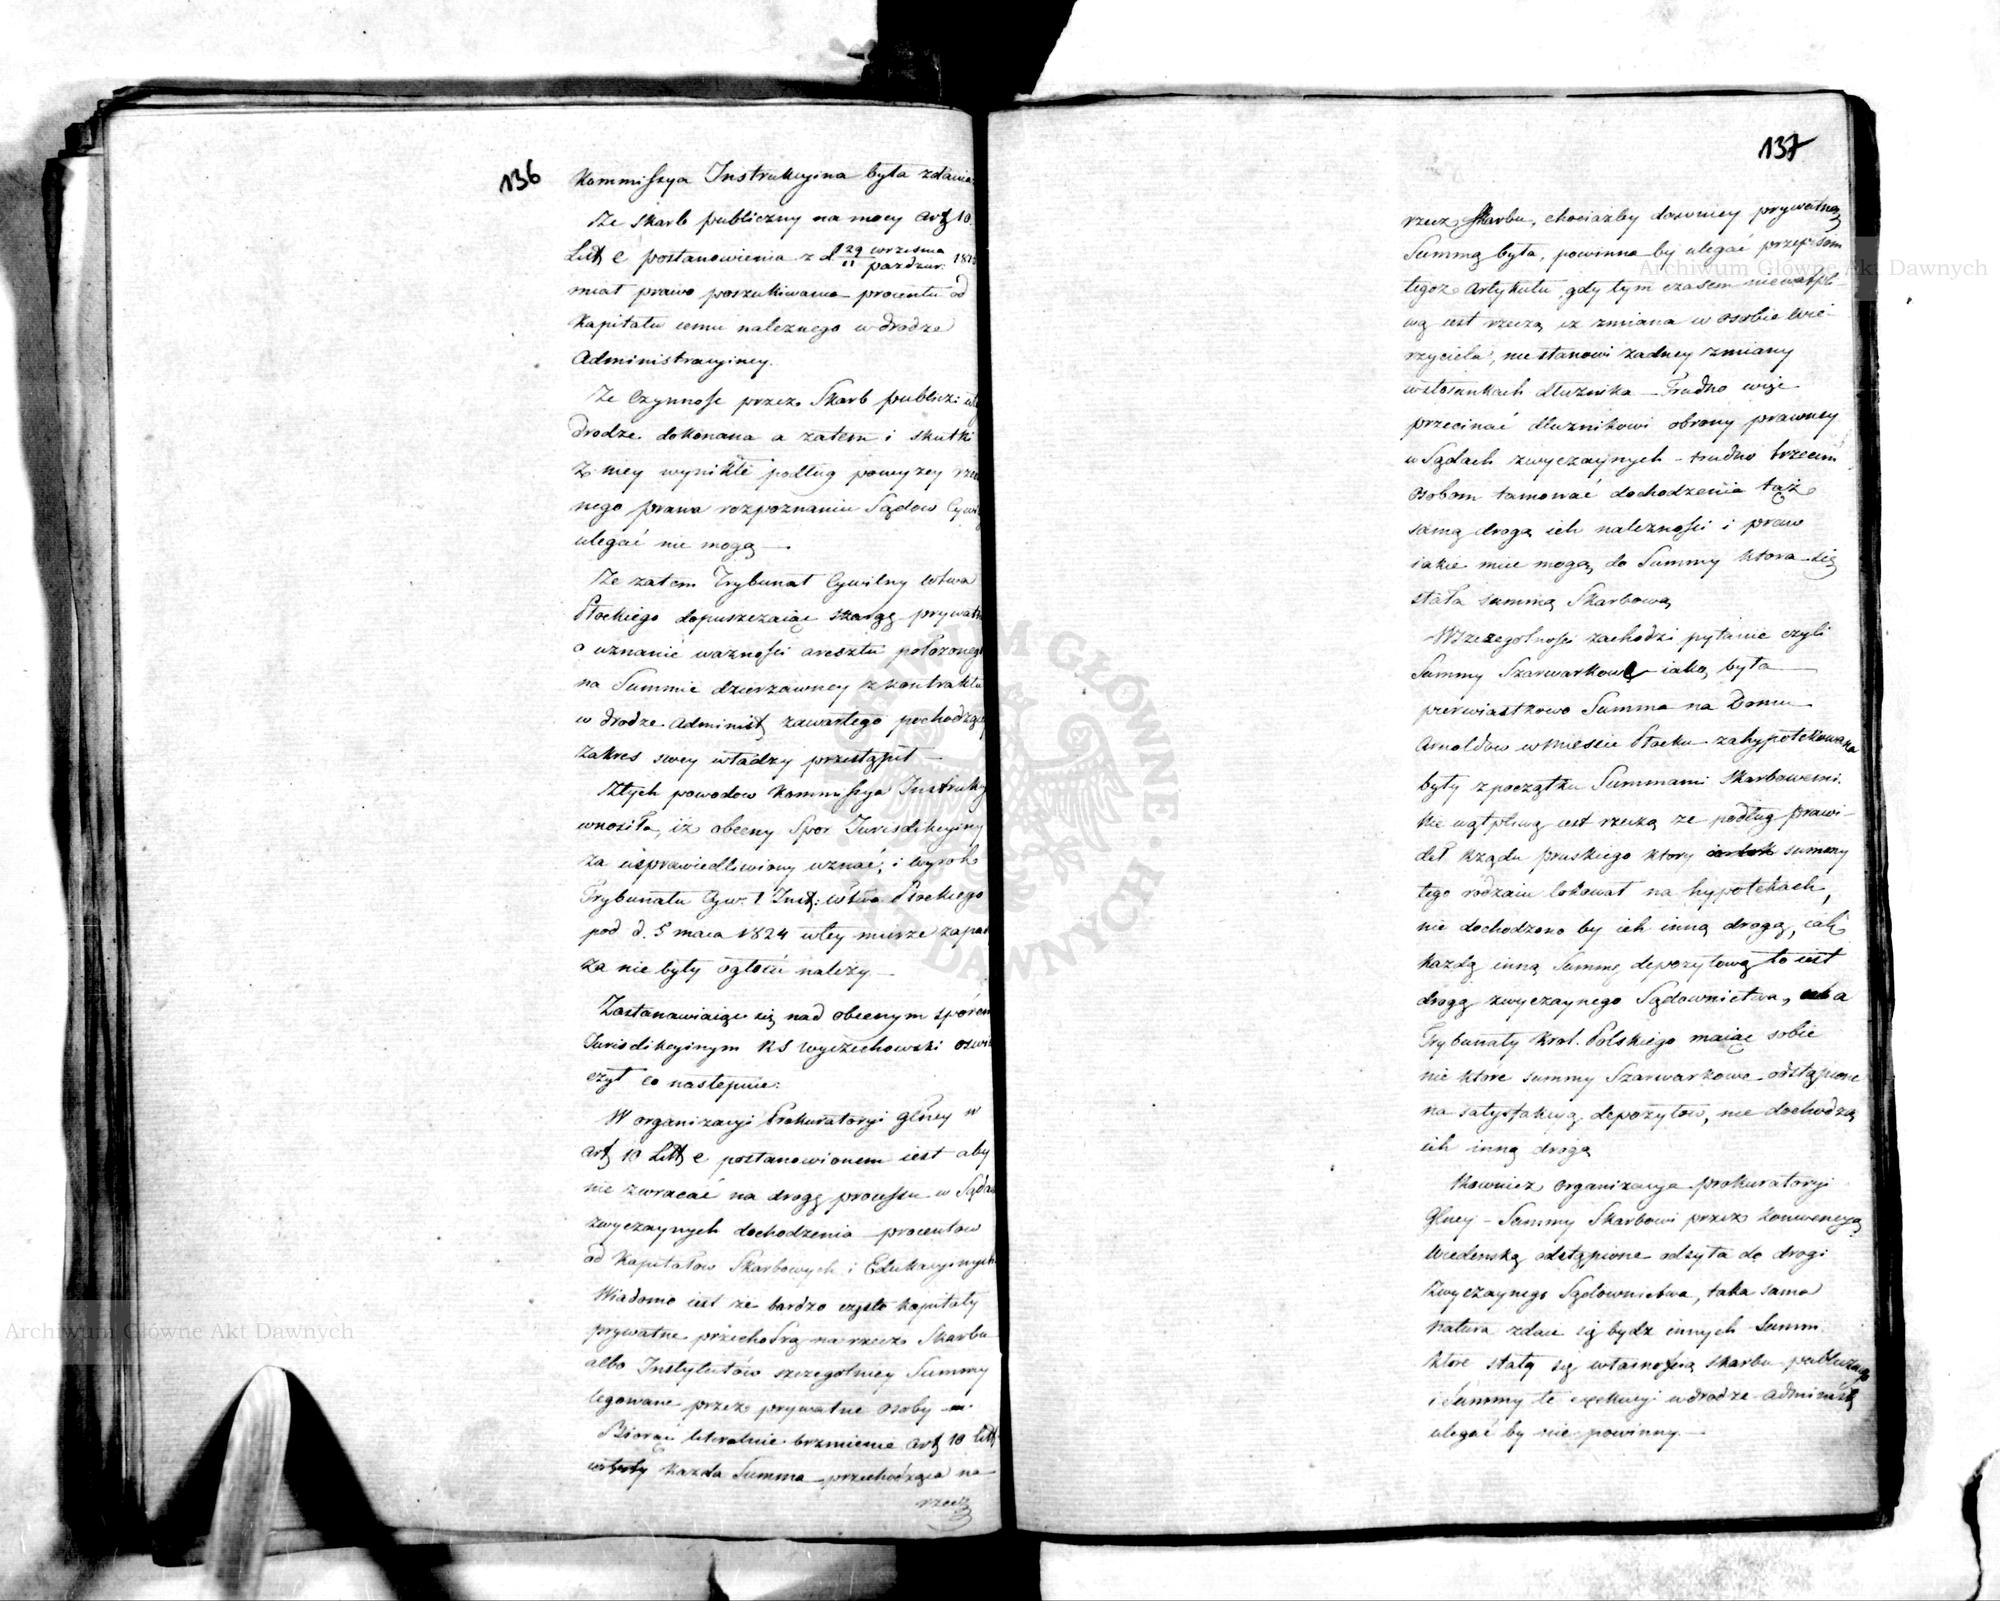 136
Kommissya Instrukcyina była zdania
Że Skarb publiczny na mocy art 10
Litt e postanowienia z d 29 września / 11 paździer. 18
miał prawo poszukiwania procentu od
Kapitału iemu należnego w drodze
Administracyiney.
Że Czynność przez Skarb publicz:
drodze dokonana a zatem i skutki
z niey wynikłe podług powyżey
nego prawa rozpoznaniu Sądow Cywil
ulegać nie mogą —
Że zatem Trybunał Cywilny Wtwa
Płockiego dopuszczaiąc skargę prywatn
o uznanie ważności aresztu położoneg
na Summie dzierżawney z kontraktu
w drodze Administ zawartego pochodząc
zakres swey władzy przestąpił —
Ztych powodow Kommissya Instrukcy
wnosiła, iż obecny Spor Jurisdikcyiny
za usprawiedliwiony uznać, i wyrok
Trybunału Cyw. I Inst: Wtwa Płockiego
pod d. 5 maia 1824 wtey mierze zapad
za nie były ogłosić należy —
Zastanawiaiąc się nad obecnym sporem
Jurisdikcyinym RS Wyczechowski oświ
czył co następuie:
W organizacyi Prokuratoryi Głney w
art 10 Litt e postanowionem iest aby
nie zwracać na drogę processu w Sąda
zwyczaynych dochodzenia procentow
od Kapitałow Skarbowych i Edukacyinych
Wiadomo iest że bardzo często kapitały
prywatne przechodzą na rzecz Skarbu
albo Instytutów szczegolniey Summy
legowane przez prywatne osoby
Biorąc literalnie brzmienie art 10 litt
każda Summa przechodząca na
rzecz
137
rzecz Skarbu, chociażby dawniey prywatną
Summą była, powinna by ulegać przepisom
tegoż Artykułu, gdy tym czasem niewątpli-
wą iest rzeczą iż zmiana w osobie wie-
rzyciela, nie stanowi żadney zmiany
w stosunkach dłużnika — Trudno więc
przecinać dłużnikowi obrony prawney
w Sądach zwyczaynych — trudno trzecim
osobom tamować dochodzenia tąż
samą drogą ich należności i praw
iakie mieć mogą do Summy ktora się
stała summą Skarbową
Wszczegolności zachodzi pytanie czyli
Summy Szarwarkowe iaką była
pierwiastkowo Summa na Domu
Arnoldow w mieście Płocku zahypotekowana
były z początku Summami Skarbowemi.
Nie wątpliwą iest rzeczą że podług prawi-
deł Rządu pruskiego ktory summy
tego rodzaiu lokował na hypotekach,
nie dochodzono by ich inną drogą, iak
każdą inną Summę depozytową to iest
drogą zwyczaynego Sądownictwa, a
Trybunały Krol. Polskiego maiąc sobie
nie ktore summy Szarwarkowe odstąpione
na satysfakcyą depozytow, nie dochodzą
ich inną drogą
Rownież organizacya prokuratoryi
Głney — Summy Skarbowi przez konwencyą
Wiedeńską odstąpione odsyła do drogi
zwyczaynego Sądownictwa, taka sama
natura zdaie się bydz innych Summ.
ktore stały się własnością skarbu publicznego
i Summy te exekucyi w drodze Administ
ulegać by nie powinny. —